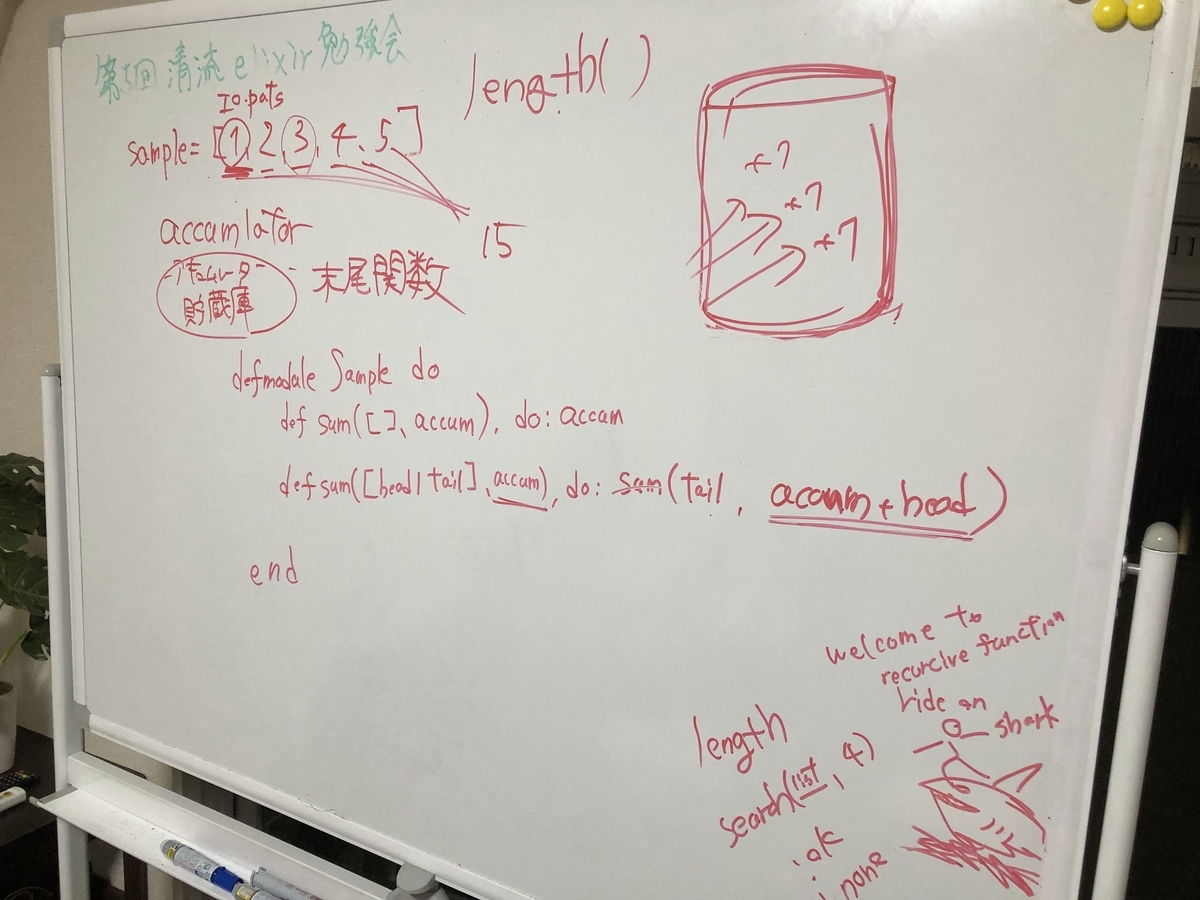 第5回 清流 elixir 勉強会
IO.puts
sample = [1, 2, 3, 4, 5]
15
length()
+7
+7
+7
accamlator
アキュムレーター
貯蔵庫
末尾関数
defmodule Sample do
def sum([], accum), do: accum
def sum([head | tail], accum), do: sum(tail, accum + head)
end
welcome to
recurcive function
ride on
shark
length
search(list, 4)
:ok
: none